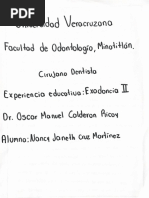 Universidad Veracruzana
Facultad de Odontología, Minatitlán.
Cirujano Dentista
Experiencia educativa: Exodoncia II
Dr. Oscar Manuel Calderon Pricoy
Alumno: Nancy Janeth Cruz Martinez